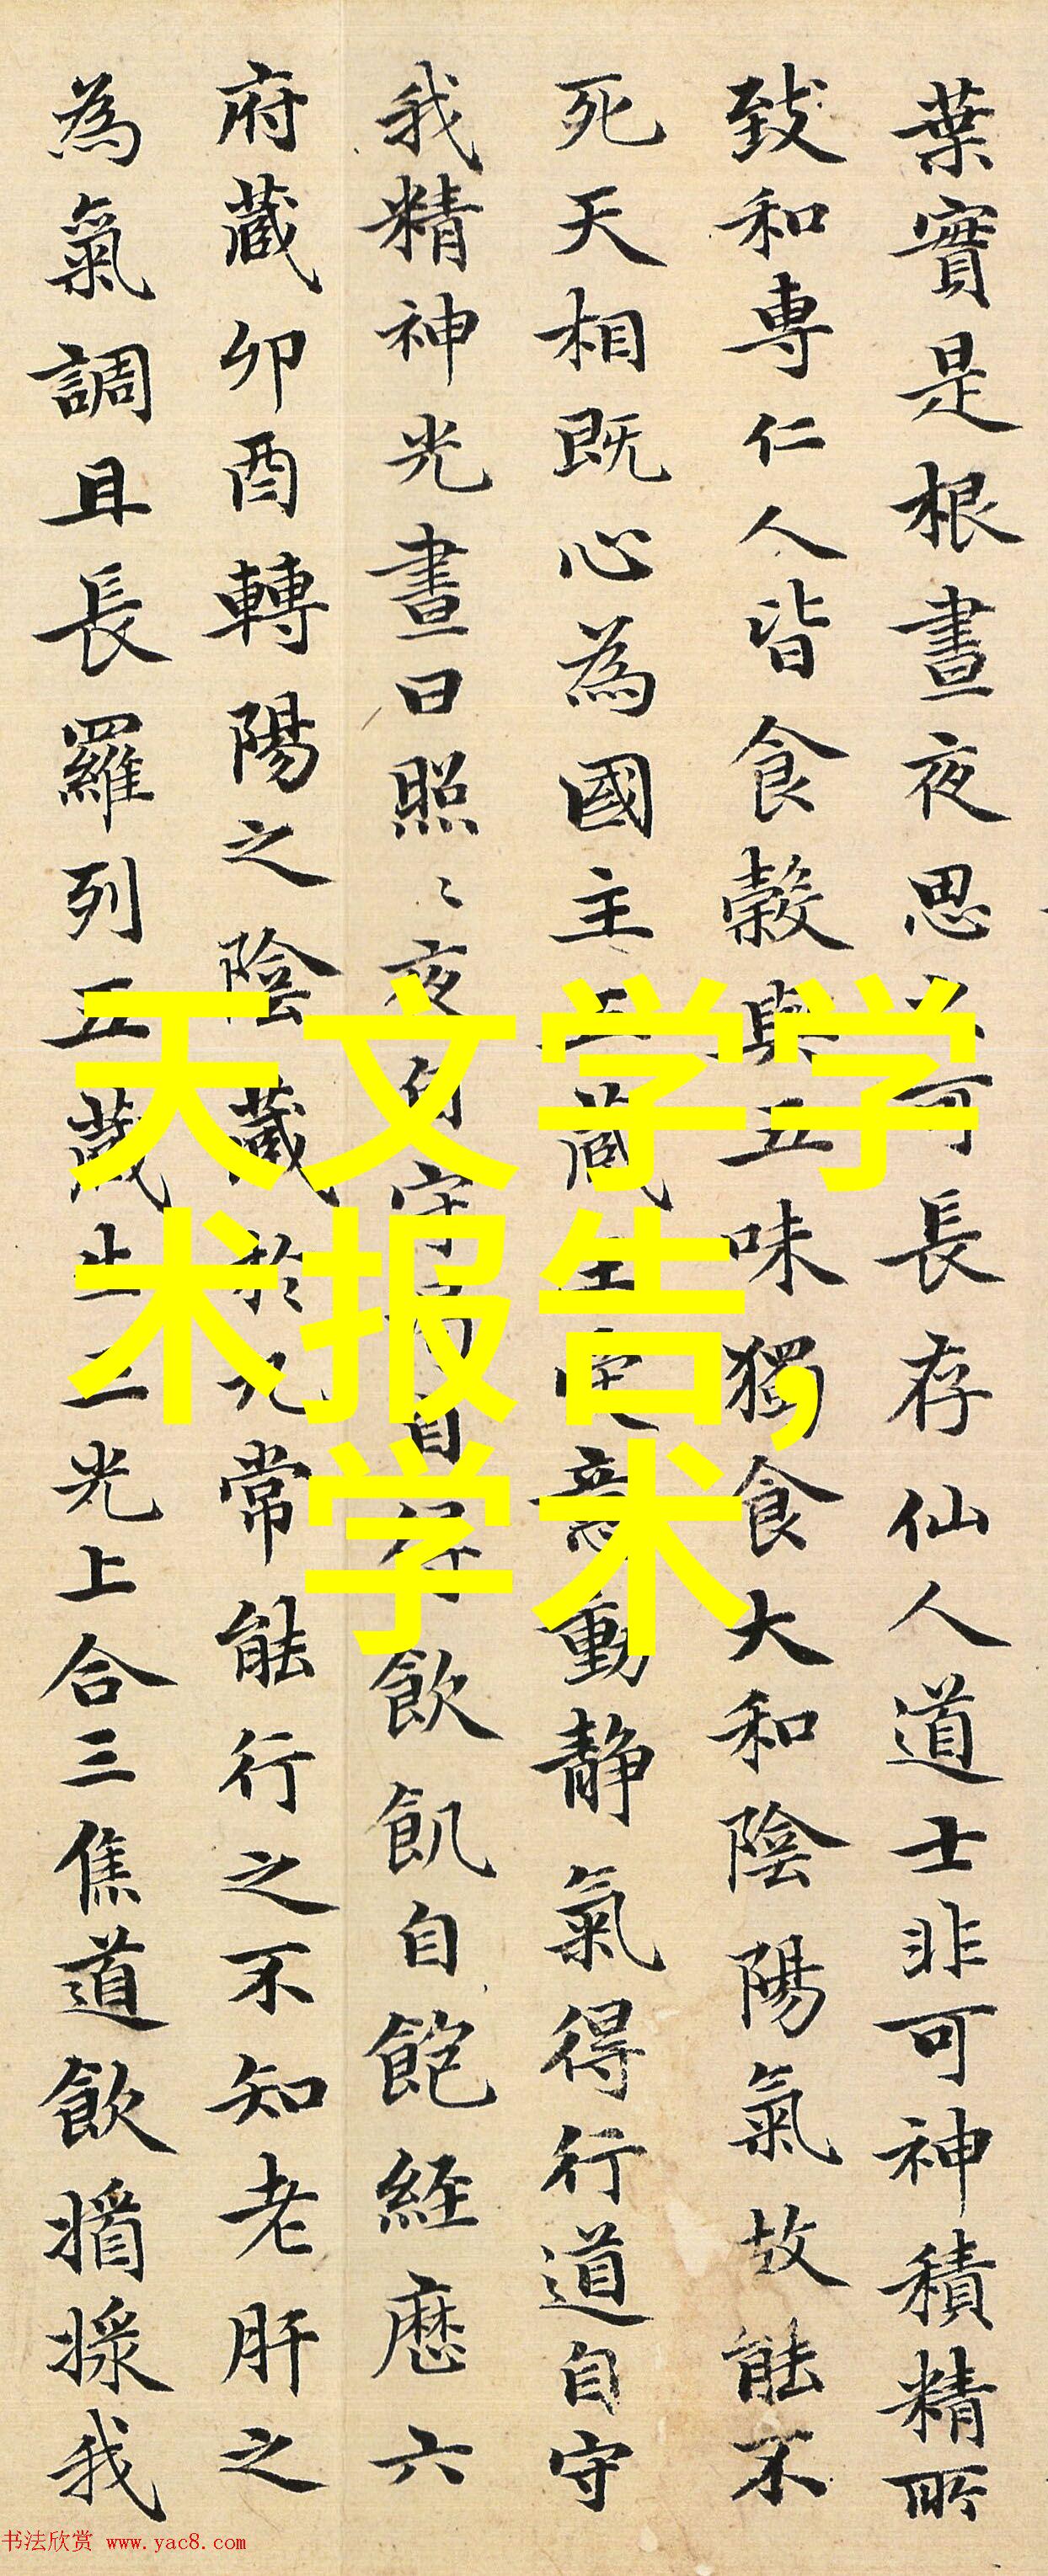 葉實是根晝夜思 可長存仙人道士非可神積精所
致和專仁人皆食穀與五味獨食大和陰陽氣故能不
死天相既心為國主五藏王受意動静氣得行道自守
我精神光晝日照〻夜 守 自得飲飢自飽經歷六
府藏卯酉轉陽之陰藏於九常能行之不知老肝之
為氣調且長羅列五藏生三光上合三焦道飲 我
天文学学
术报告,
学术
书法欣赏 www.yac8.com